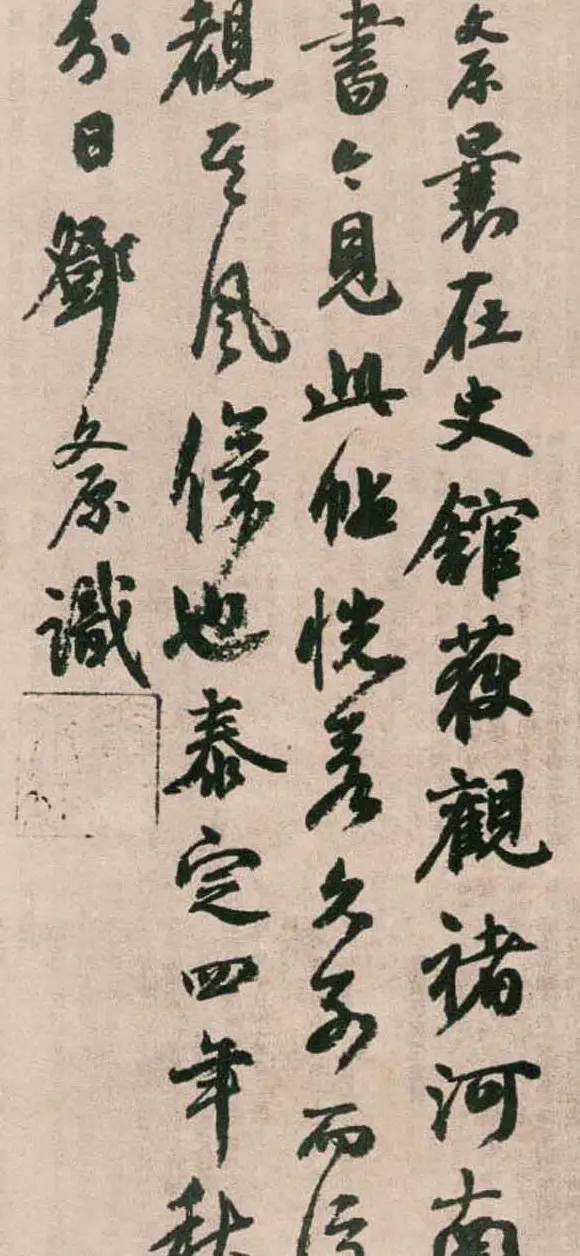 文原曩在史館獲觀褚河南
書今見此帖恍若久別而
覩其風儀也泰定四年秋
分日鄧文原識